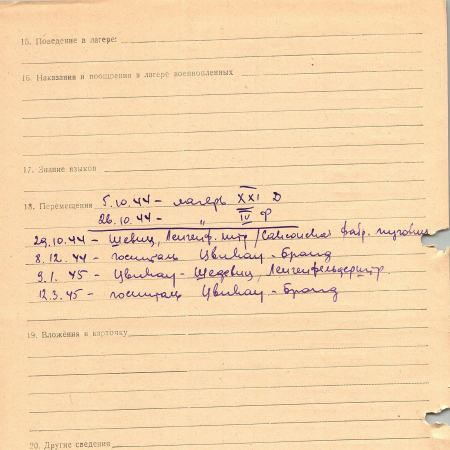 15. Поведение в лагере:
16. Наказания и поощрения в лагере военнопленных
17. Знание языков
18. Перемещения 5.10.44 – лагерь XXI D
26.10.44 – " IV Ф
29.10.44 – Шевиц, Ленгенф. штр /Саксонская фабр. пуговиц
8.12.44 – госпиталь Цвикау – Бранд
9.1.45 – Цвикау – Шедевиц, Ленгенфельдерштр.
12.3.45 – госпиталь Цвикау – Бранд
19. Вложения в карточку
20. Другие сведения